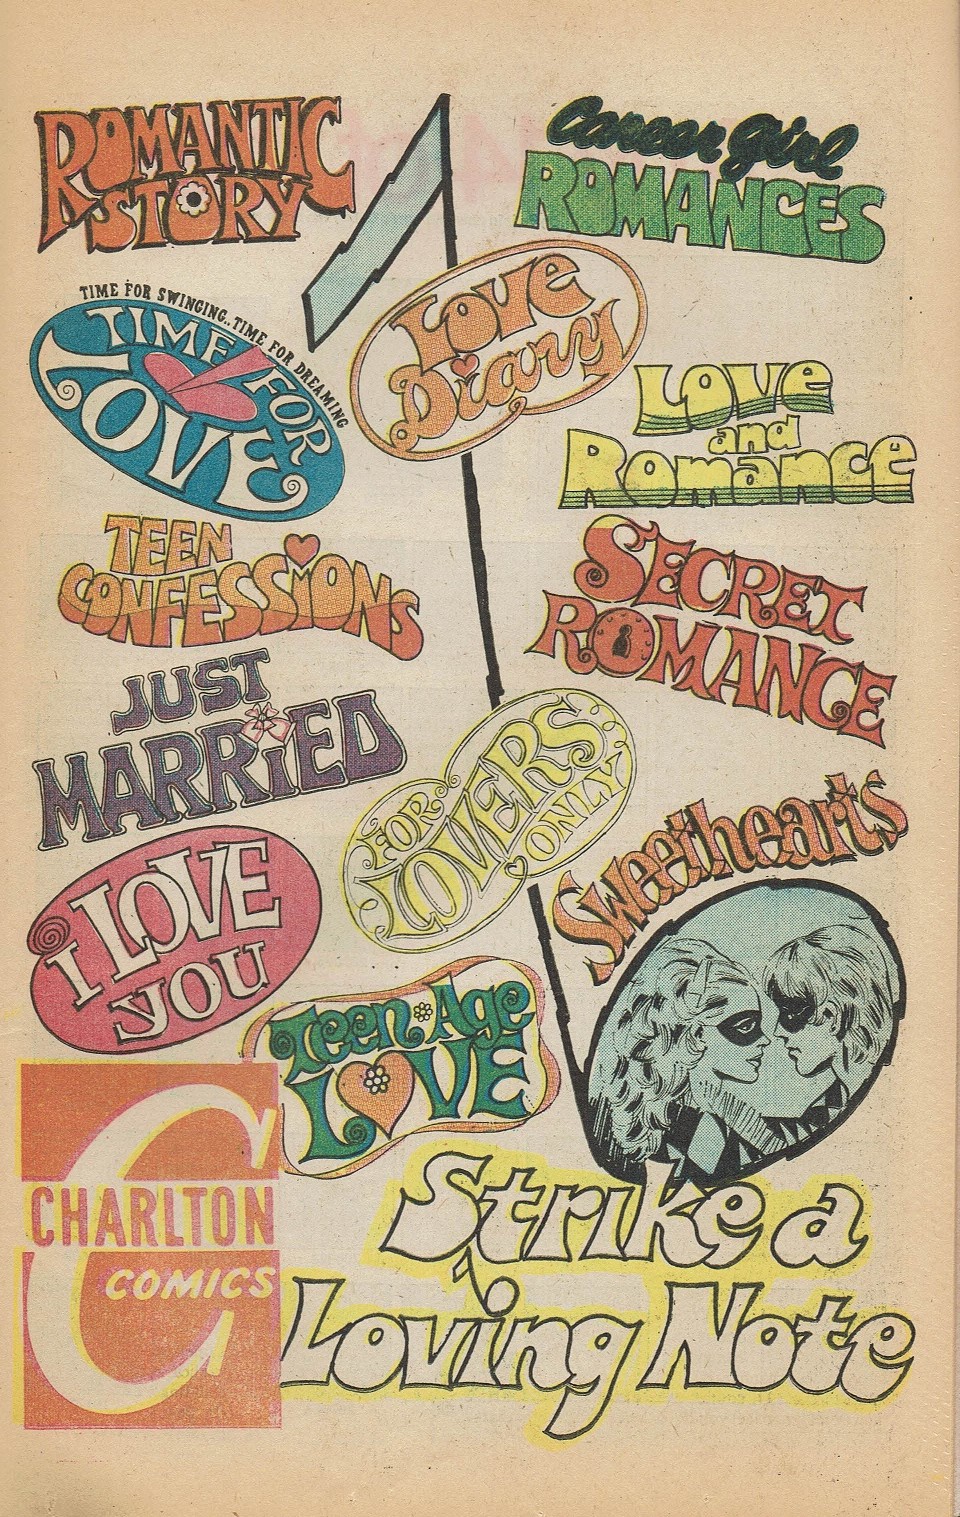 ROMANTIC
STORY
Career Girl
ROMANCES
TIME FOR SWINGING.. TIME FOR DREAMING
TIME
FOR
LOVE
Love
Diary
LOVE
and
Romance
TEEN
CONFESSIONS
SECRET
ROMANCE
JUST
MARRiED
FOR
LOVERS
ONLY
Sweethearts
I LOVE
YOU
Teen-Age
LOVE
CHARLTON
COMICS
Strike a
Loving Note